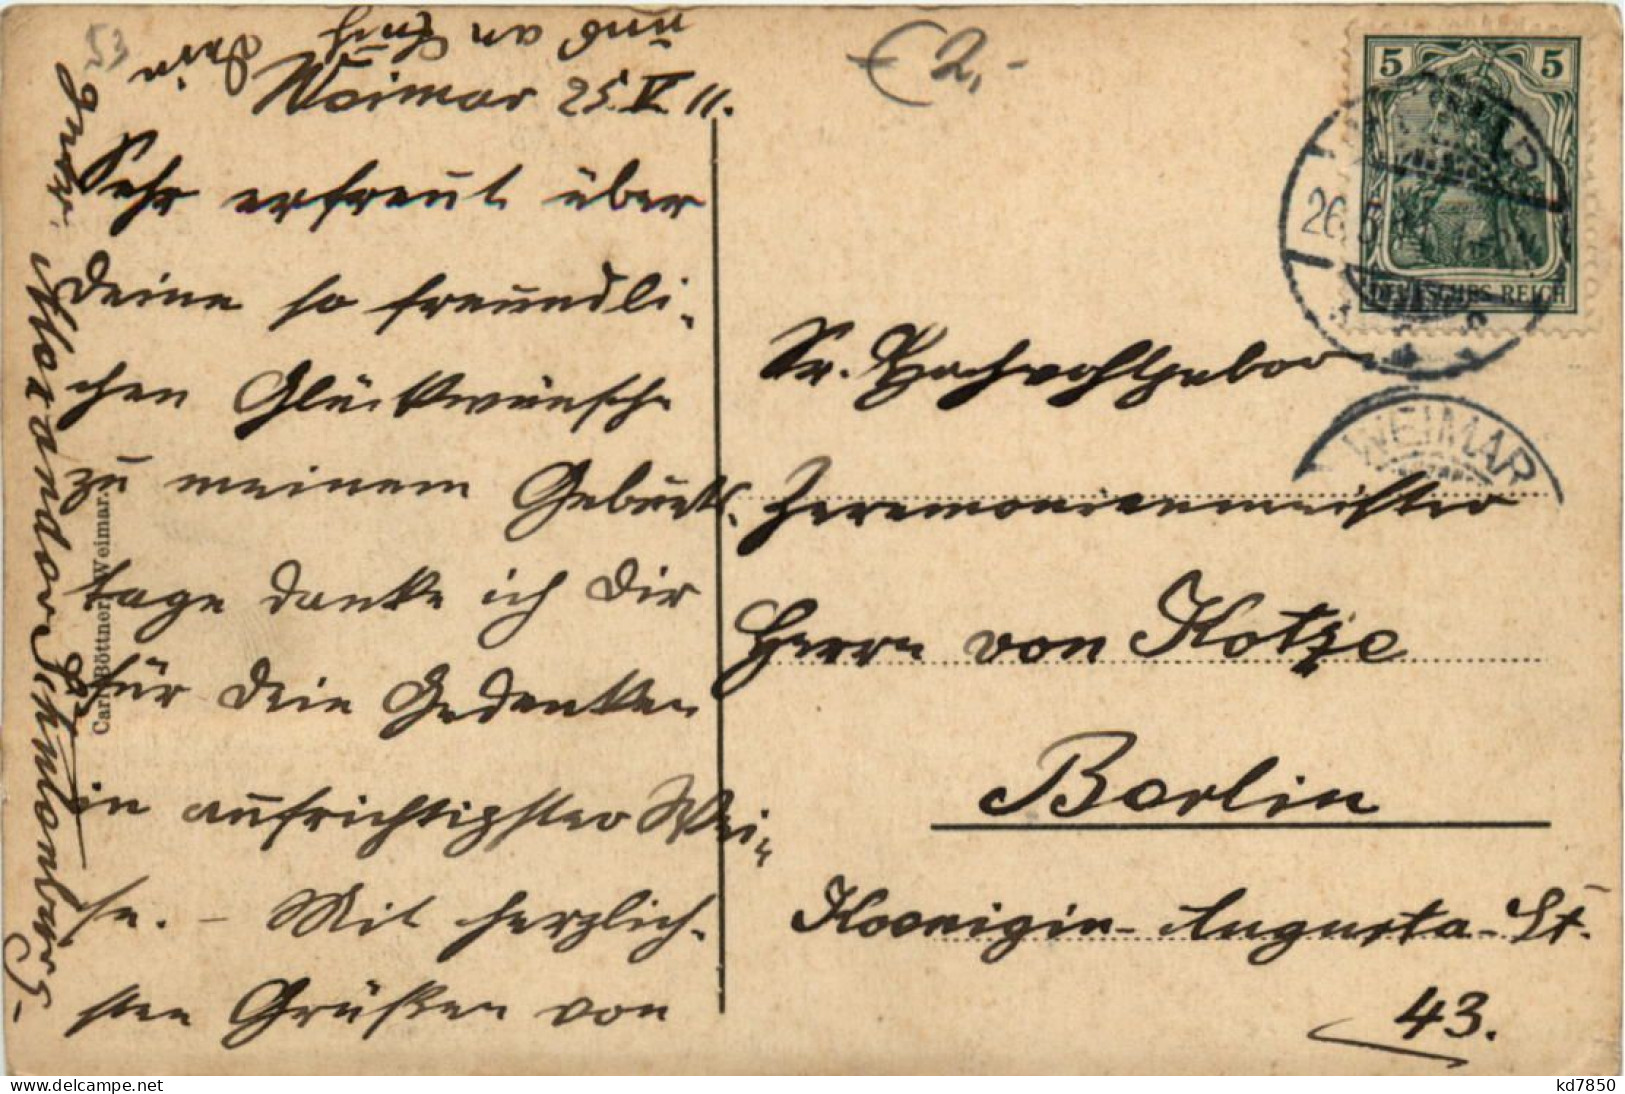 53
Weimar 25. V. 11.
Sehr erfreut über
Deine so freundli-
chen Glückwünsche
zu meinem Geburts-
tage danke ich Dir
für Dein Gedenken
in aufrichtigster Wei-
se. - Mit herzlich-
sten Grüßen von
und an
Dein
Alexander Schulenburg.
Carl Böttner, Weimar.
€ 2,-
5 5
DEUTSCHES REICH
26. 5.
WEIMAR
Sr. Hochwohlgebor
Zeremonienmeister
Herrn von Kotze
Berlin
Koenigin-Augusta-St.
43.
kd7850